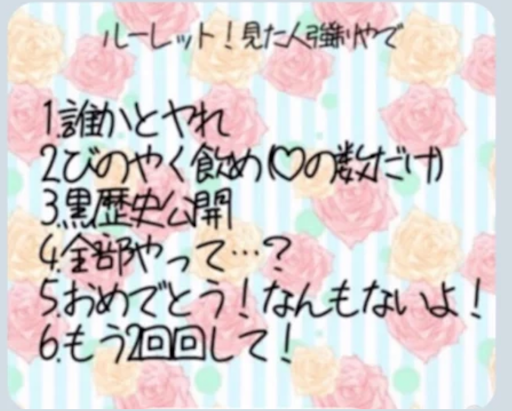 ルーレット！見た人強制やで
1.誰かとヤれ
2.びのやく飲め(♡の数だけ)
3.黒歴史公開
4.全部やって…？
5.おめでとう！なんもないよ！
6.もう2回回して！